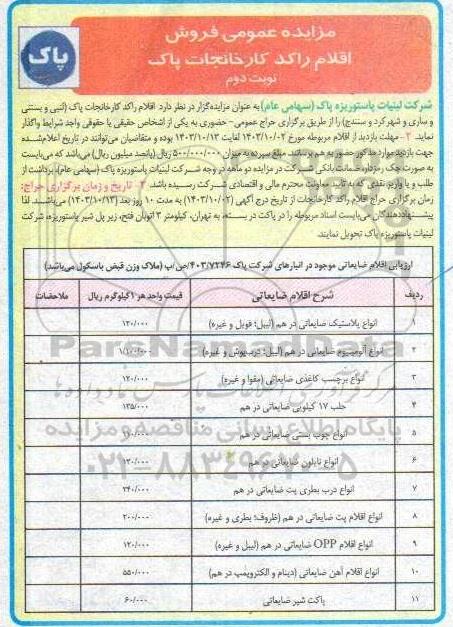 مزایده عمومی فروش
اقلام راکد کارخانجات پاک
نوبت دوم
پاک
شرکت لبنیات پاستوریزه پاک (سهامی عام) به عنوان مزایده‌گزار در نظر دارد اقلام راکد کارخانجات پاک (لبنی و بستنی
و ساری و شهرکرد و سنندج) را از طریق برگزاری حراج عمومی- حضوری به یکی از اشخاص حقیقی یا حقوقی واجد شرایط واگذار
نماید. ۲- مهلت بازدید از اقلام مربوطه مورخ ۱۴۰۳/۱۰/۰۲ لغایت ۱۴۰۳/۱۰/۱۳ بوده و متقاضیان می‌توانند در تاریخ اعلام‌شده
جهت بازدید موارد مذکور حضور به هم برسانند. مبلغ سپرده به میزان ۵۰۰/۰۰۰/۰۰۰ ریال (پانصد میلیون ریال) می‌باشد که می‌بایست
به صورت چک رمزدار، ضمانت بانکی شرکت در مزایده دو ماهه در وجه شرکت لبنیات پاستوریزه پاک (سهامی عام)، برداشت از
طلب و یا واریز نقدی که به تایید معاونت محترم مالی و اقتصادی شرکت رسیده باشد. ۳- تاریخ و زمان برگزاری حراج:
زمان برگزاری حراج اقلام راکد کارخانجات از تاریخ درج آگهی (۱۴۰۳/۱۰/۰۲) به مدت ۱۰ روز بعد (۱۴۰۳/۱۰/۱۳) می‌باشد. لذا
پیشنهاددهندگان می‌بایست اسناد مربوطه را در پاکت در بسته، به تهران، کیلومتر ۳ اتوبان فتح، زیر پل شیر پاستوریزه، شرکت
لبنیات پاستوریزه پاک تحویل نمایند.
ارزیابی اقلام ضایعاتی موجود در انبارهای شرکت پاک ۴۰۳/۷۲۴۶/ص/پ (ملاک وزن قبض باسکول می‌باشد)
ردیف شرح اقلام ضایعاتی قیمت واحد هر ۱ کیلوگرم ریال ملاحضات
۱ انواع پلاستیک ضایعاتی در هم (لیبل؛ فویل و غیره) ۱۲۰/۰۰۰
۲ انواع آلومینیوم ضایعاتی در هم (لیبل؛ درب‌پوش و غیره) ۱/۱۰۰/۰۰۰
۳ انواع برچسب کاغذی ضایعاتی (مقوا و غیره) ۱۲۰/۰۰۰
۴ حلب ۱۷ کیلویی ضایعاتی در هم ۱۳۵/۰۰۰
۵ انواع چوب بستنی ضایعاتی در هم ۱۶۰/۰۰۰
۶ انواع نایلون ضایعاتی در هم ۱۳۰/۰۰۰
۷ انواع درب بطری پت ضایعاتی در هم ۳۴۰/۰۰۰
۸ انواع اقلام پت ضایعاتی در هم (ظروف؛ بطری و غیره) ۲۰۰/۰۰۰
۹ انواع اقلام OPP ضایعاتی در هم (لیبل و غیره) ۱۲۰/۰۰۰
۱۰ انواع اقلام آهن ضایعاتی (دینام و الکتروپمپ در هم) ۵۵۰/۰۰۰
۱۱ پاکت شیر ضایعاتی ۶۰/۰۰۰
ParsNamadData
پایگاه اطلاع رسانی مناقصه و مزایده
۰۲۱-۸۸۳۴۹۶۷۰-۵